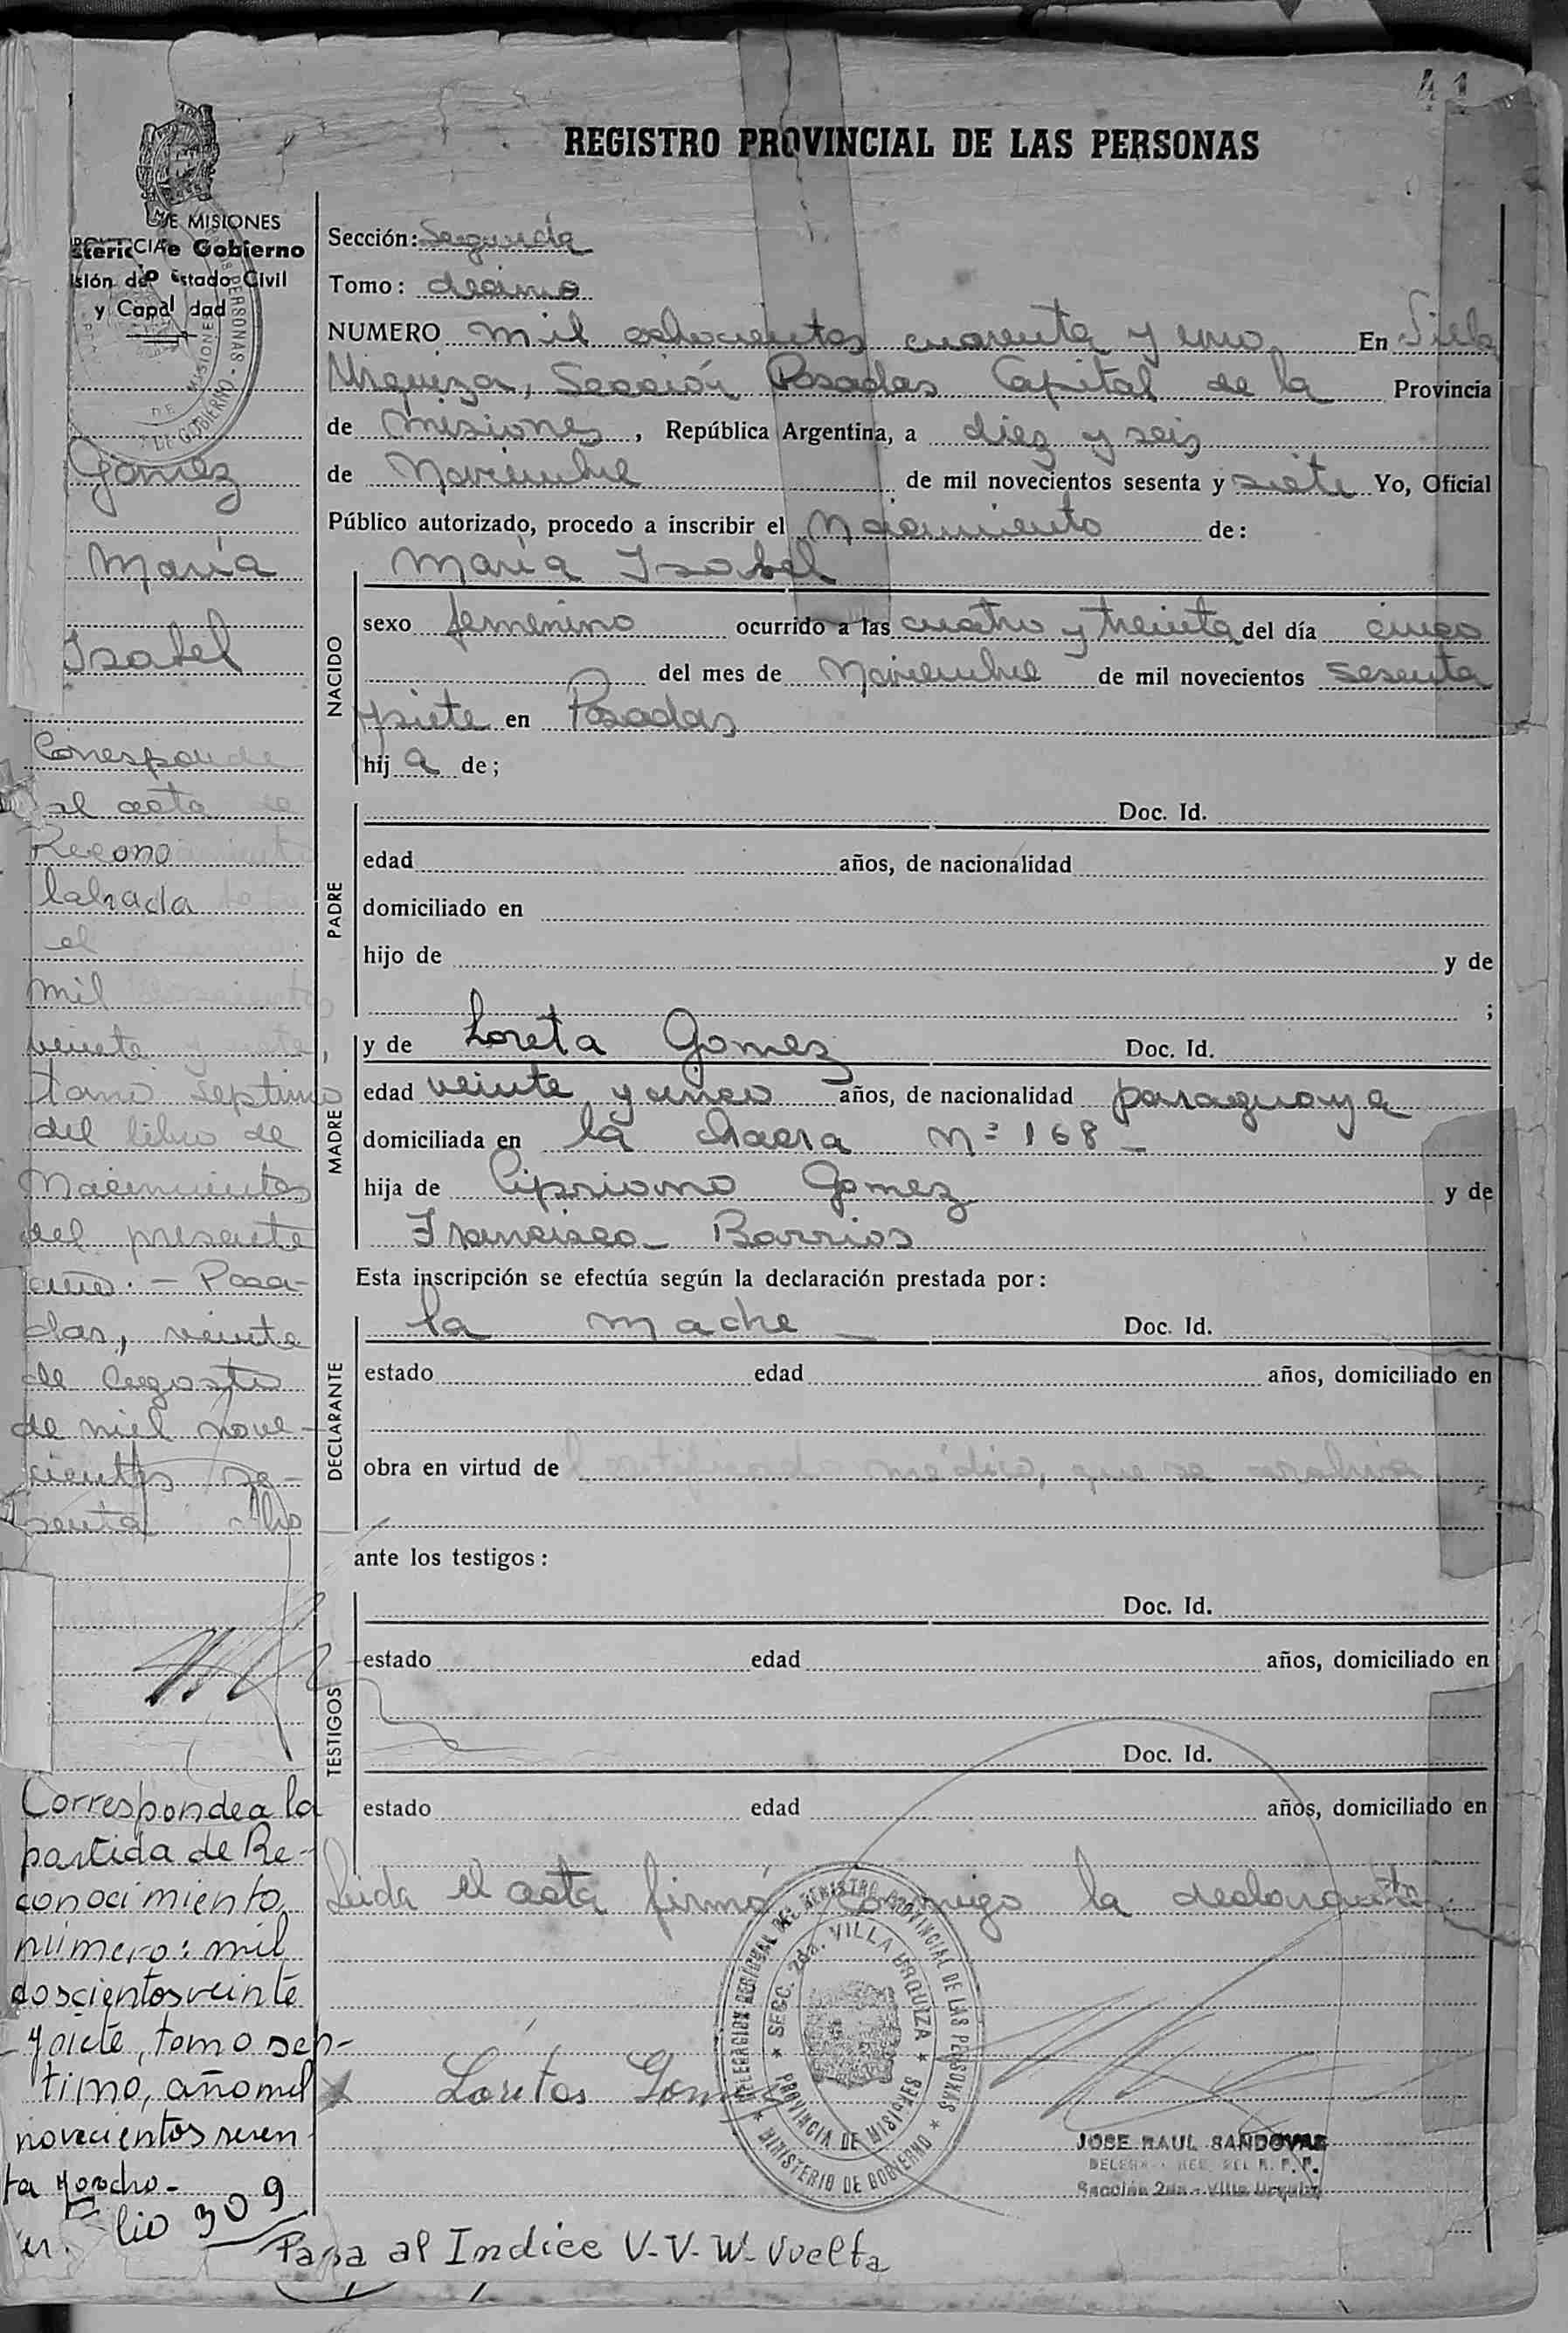 41
REGISTRO PROVINCIAL DE LAS PERSONAS
DE MISIONES
Gobierno
Estado Civil
y Capa dad
Gómez
María
Isabel
Corresponde
al acta de
Recono
labrada
el
mil
veinte y siete,
tomo septimo
del libro de
Nacimientos
del presente
año. - Posa-
das, veinte
de Agosto
de mil nove-
cientos se-
senta ocho
Corresponde a la
partida de Re-
conocimiento
número: mil
doscientos veinte
y siete, tomo sep-
timo, año mil
novecientos sesen
ta y ocho -
Folio 309
Sección: Segunda
Tomo: decimo
NUMERO mil ochocientos cuarenta y uno En Villa
Urquiza, Sección Posadas Capital de la Provincia
de Misiones, República Argentina, a diez y seis
de Noviembre de mil novecientos sesenta y siete Yo, Oficial
Público autorizado, procedo a inscribir el Nacimiento de:
NACIDO
María Isabel
sexo femenino ocurrido a las cuatro y treinta del día cinco
del mes de Noviembre de mil novecientos sesenta
y siete en Posadas
hij a de;
PADRE
Doc. Id.
edad años, de nacionalidad
domiciliado en
hijo de y de
;
MADRE
y de Loreta Gomez Doc. Id.
edad veinte y cinco años, de nacionalidad paraguaya
domiciliada en la chacra Nº 168 -
hija de Cipriano Gomez y de
Francisca Barrios
Esta inscripción se efectúa según la declaración prestada por:
DECLARANTE
la madre - Doc. Id.
estado edad años, domiciliado en
obra en virtud de certificado médico, que se archiva
ante los testigos:
TESTIGOS
Doc. Id.
estado edad años, domiciliado en
Doc. Id.
estado edad años, domiciliado en
Leida el acta firmó conmigo la declarante.
DELEGACION REGIONAL DEL REGISTRO PROVINCIAL DE LAS PERSONAS
SECC. 2da. VILLA URQUIZA
PROVINCIA DE MISIONES
MINISTERIO DE GOBIERNO
x Loretas Gomez
JOSE RAUL SANDOVAL
DELEG. REG. DEL R. P. P.
Sección 2da - Villa Urquiza
Pasa al Indice V-V-W-Vuelta